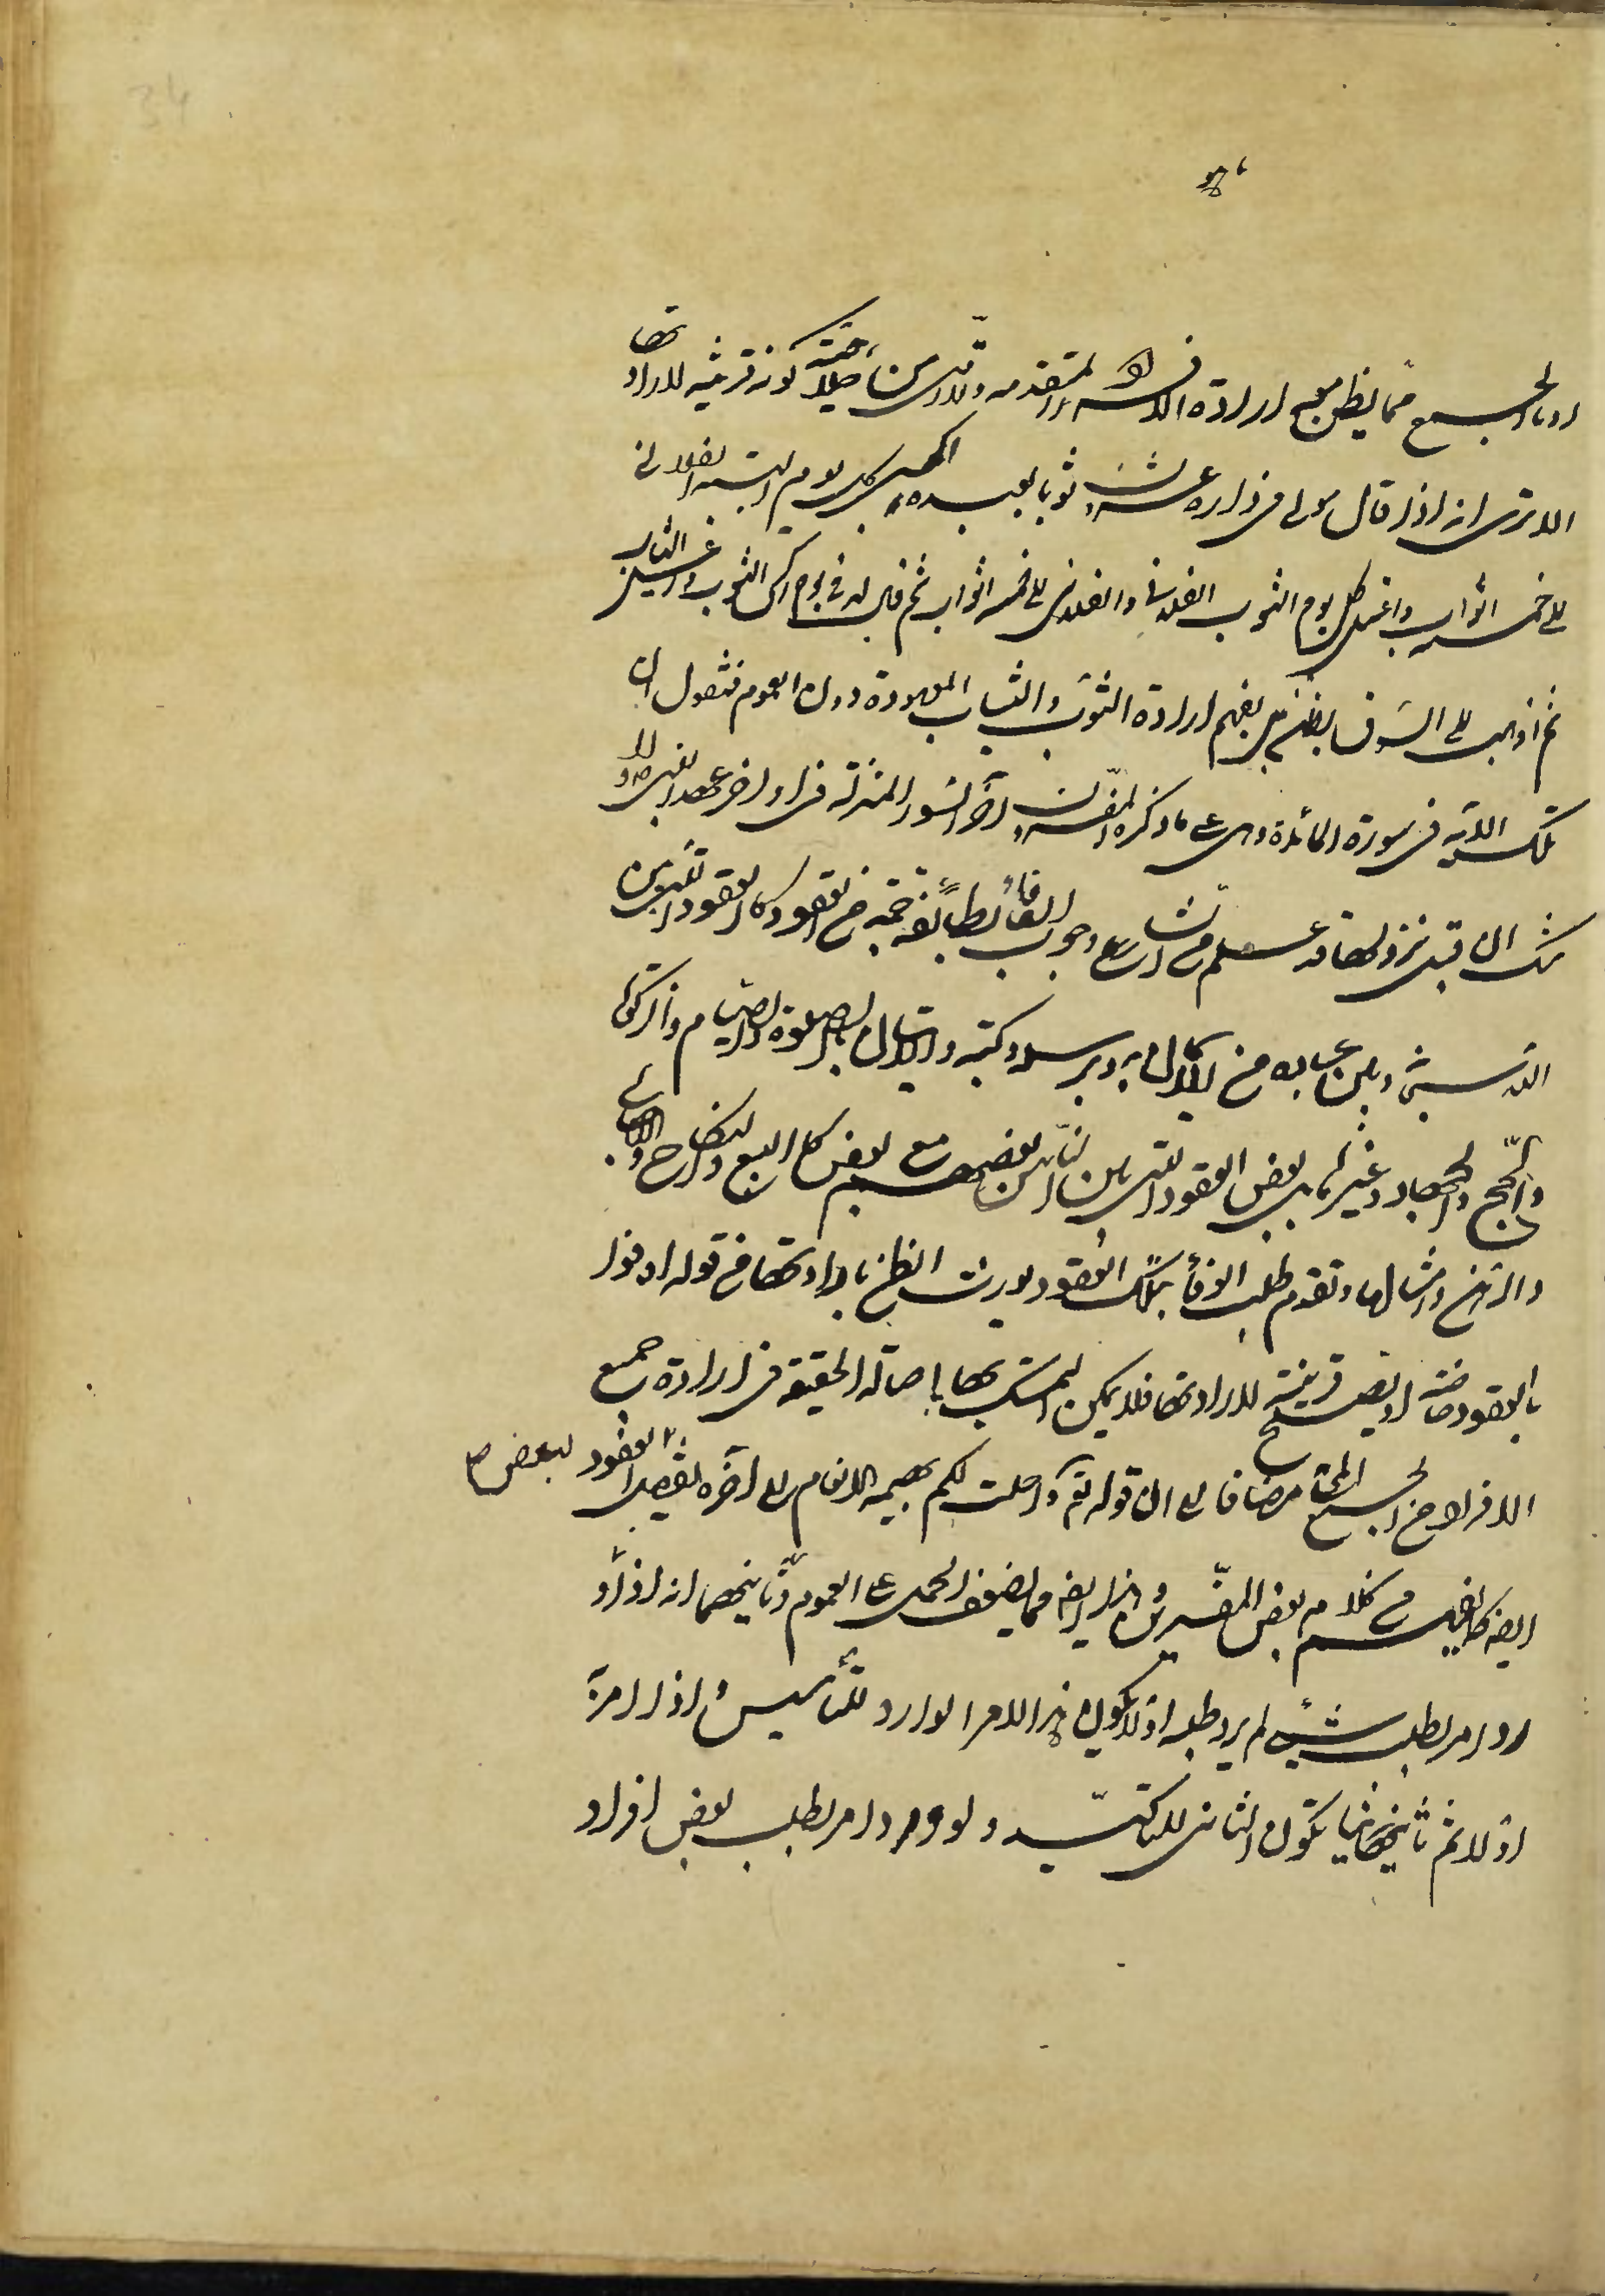 او بالجمع مما يظن معه ارادة الافراد المتقدمة ولا اقل من صلاحيته كونه قرينة لارادتها
الا ترى انه اذا قال مولى فى داره عشرون ثوبا لعبده اكنس كل يوم البيت الفلانى
الى خمسة اثواب واغسل كل يوم الثوب الفلانى والفلانى الى خمسة اثواب ثم قال له فى يوم اكنس الثوب واغسل الثياب
ثم اذهب الى السوق يظن بل يفهم ارادة الثوب والثياب المعهودة دون العموم فنقول ان
تلك الآية فى سورة المائدة وهى على ما ذكره المفسرون آخر السور المنزلة فى اواخر عهد النبى ص ولا
شك ان قبل نزولها قد علم من الشارع وجوب الوفاء بطائفة جمة من العقود كالعقود التى بين
الله سبحانه وبين عباده من الايمان به وبرسله وكتبه والاتيان بالصلوة والصيام والزكوة
والحج والجهاد وغيرها بل بعض العقود التى بين الناس بعضهم مع بعض كالبيع والنكاح والاجارة
والرهن وامثالها وتقدم طلب الوفاء بتلك العقود يورث الظن بارادتها من قوله اوفوا
بالعقود خاصة او يصلح قرينة لارادتها فلا يمكن التمسك بها باصالة الحقيقة فى ارادة جميع
الافراد من الجمع المحلى مضافا الى ان قوله تع واحلت لكم بهيمة الانعام الى آخره تفصيل لبعض العقود
ايضا كما فهم من كلام بعض المفسرين وهذا ايضا مما يضعف الحمل على العموم وثانيهما انه اذا
ورد امر بطلب شىء لم يرد طلبه اولا يكون هذا الامر الوارد للتأسيس واذا امر به
اولا ثم ثانيا يكون الثانى للتاكيد ولو ورد امر بطلب بعض افراد